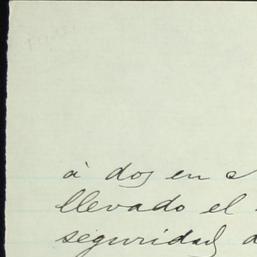 à dos en
llevado el
seguridad